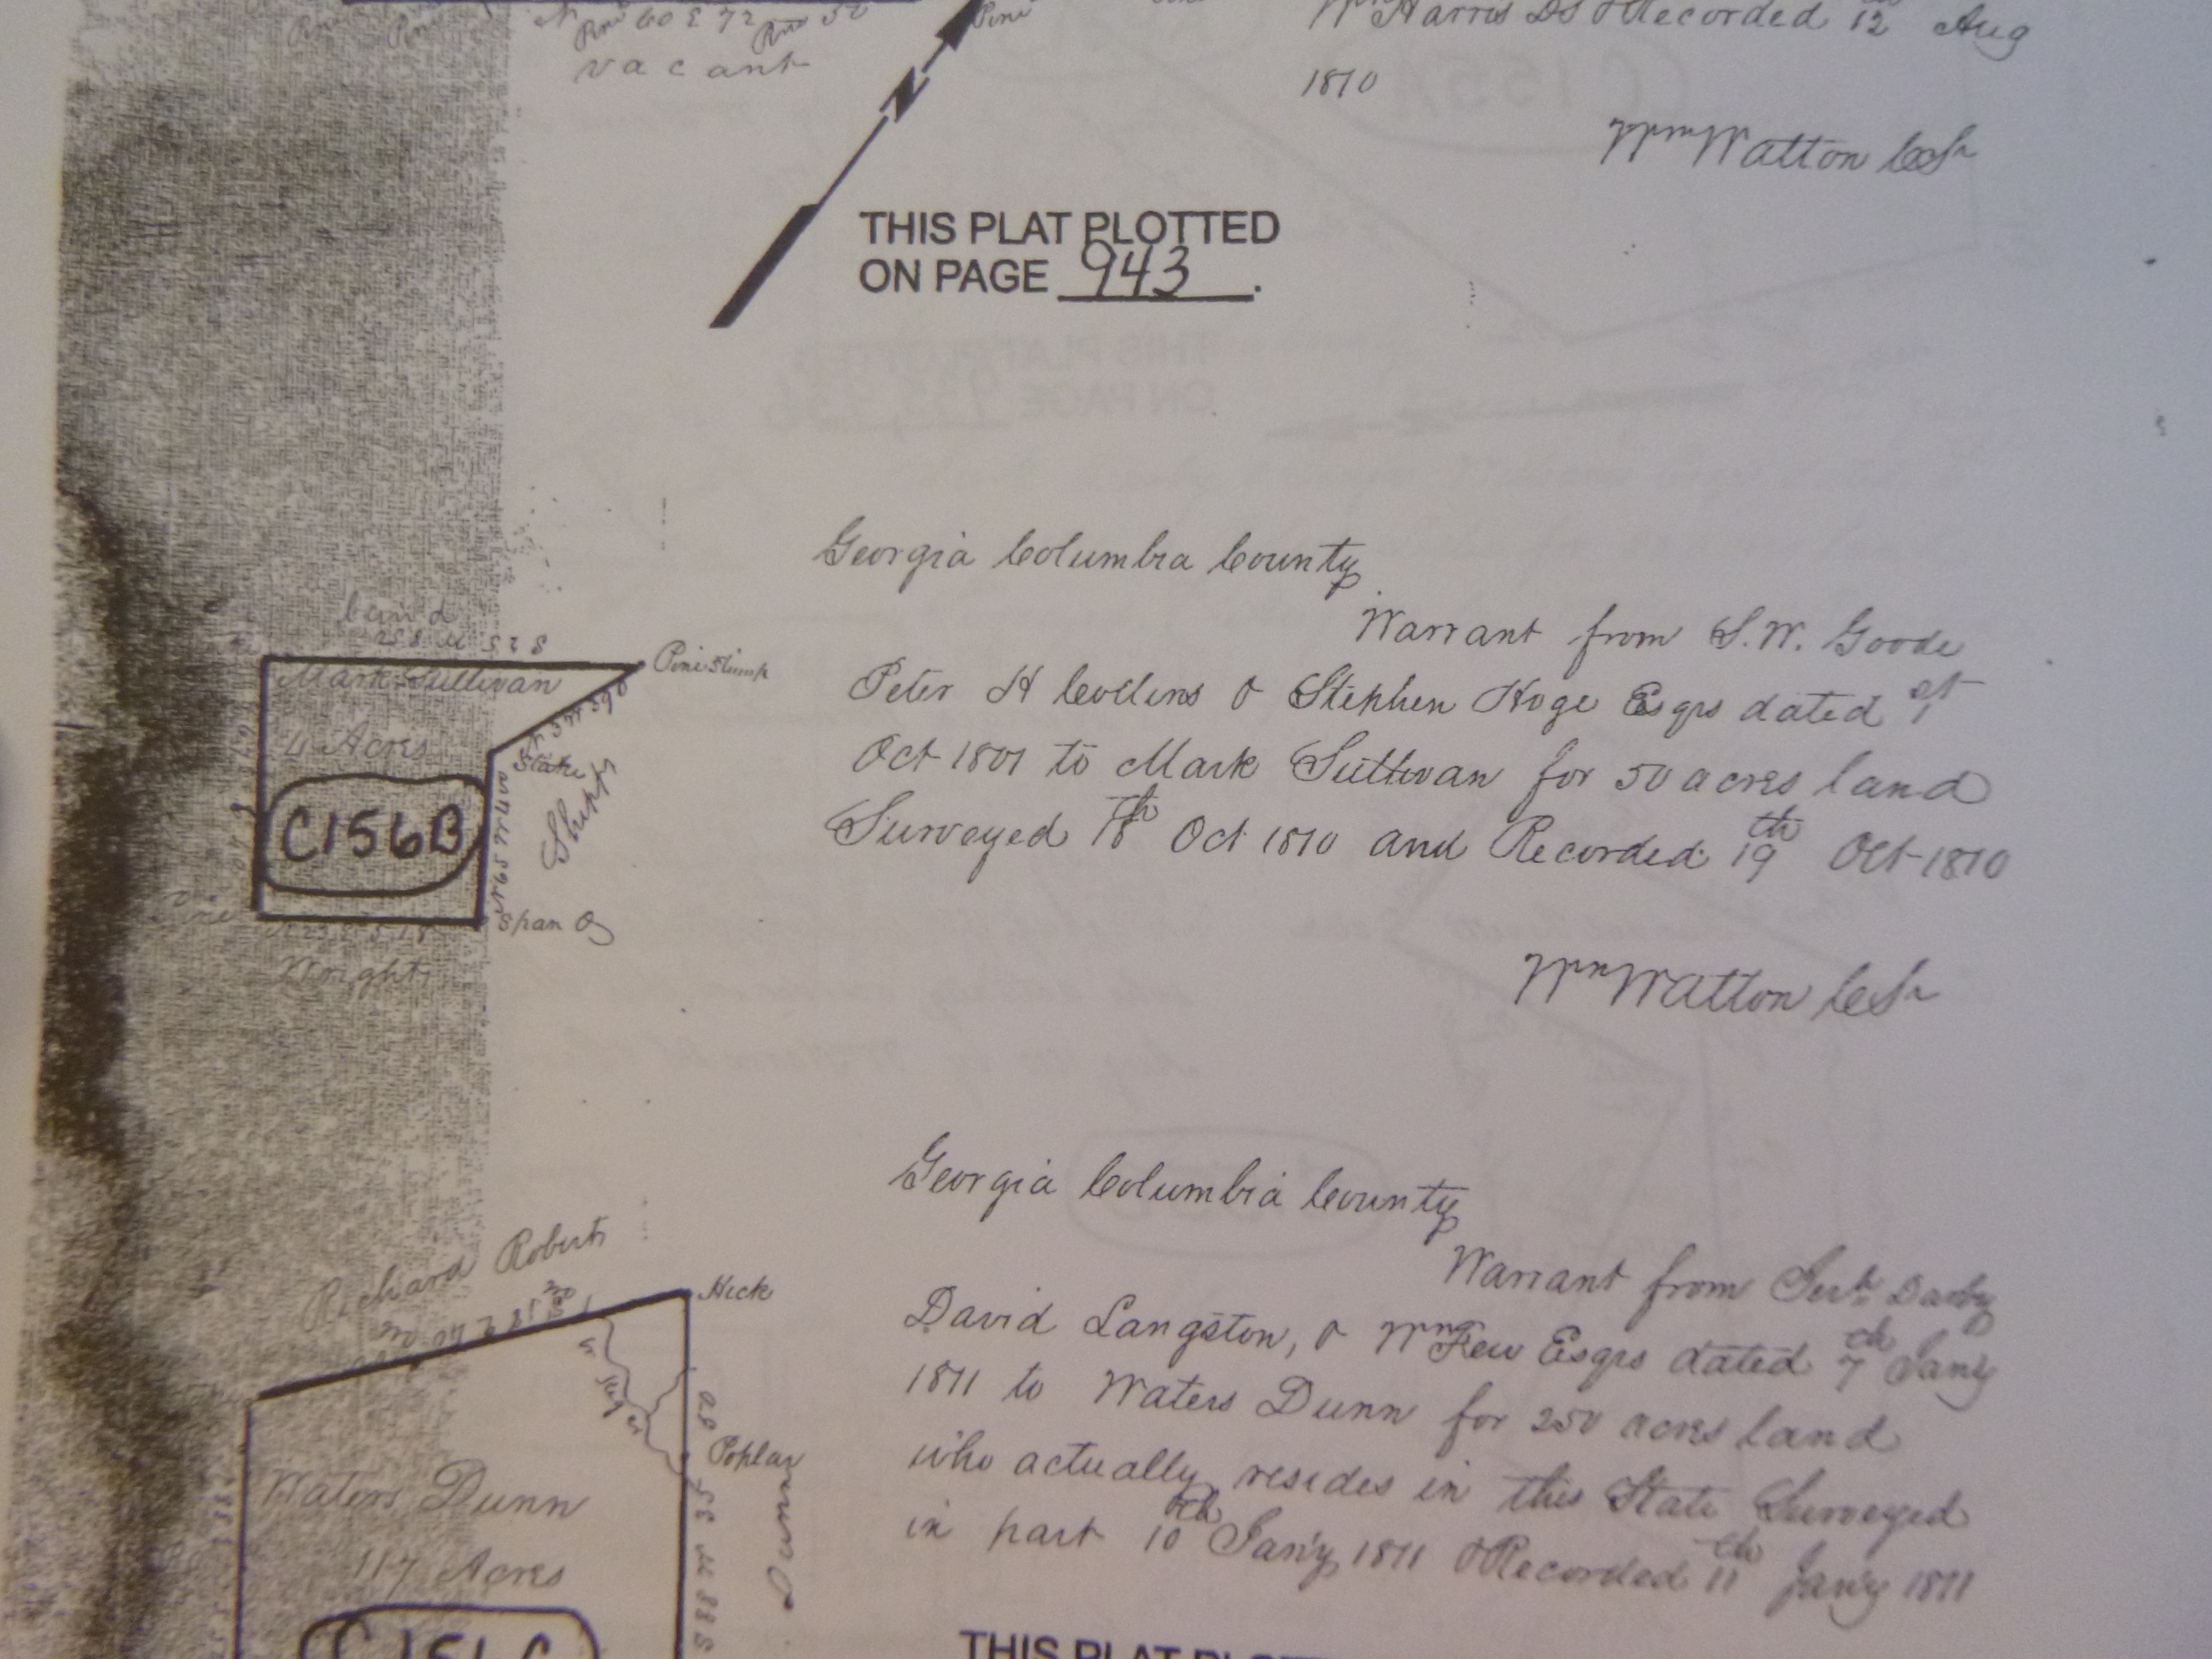 Pine 60 E 72 Pine
vacant
Pine
Wm Harris DS & Recorded 12 Aug
1810
Wm Watton CoSr
N
THIS PLAT PLOTTED
ON PAGE 943.
Georgia Columbia County
Warrant from S.W. Goode
Peter H Collins & Stephen Hoge Esqrs dated 1st
Oct 1801 to Mark Sullivan for 50 acres land
Surveyed 18th Oct 1810 and Recorded 19th Oct 1810
Wm Watton CoSr
land
Pine Stump
Mark Sullivan
4 Acres
Stake
Shipp
C156B
Pine
Span O
Wright
Georgia Columbia County
Warrant from Darby
David Langston, & Wm Few Esqrs dated 7th Jany
1811 to Waters Dunn for 250 acres land
who actually resides in this State Surveyed
in part 10th Jany 1811 & Recorded 11th Jany 1811
Richard Roberts
Hick
Poplar
Dunn
Waters Dunn
117 Acres
THIS PLAT